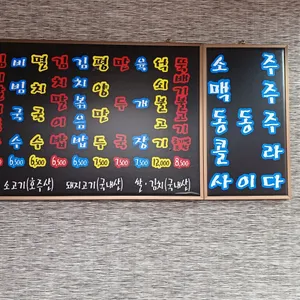 비빔국수 6,500
멸치국수 6,500
김치말이 6,500
김치볶음밥 6,500
평양만두 7,500
만두국 7,500
육개장 7,500
석쇠불고기 12,000
뚝배기불고기 8,500
소고기(호주산) 돼지고기(국내산) 쌀·김치(국내산)
소주
맥주
동동주
콜라
사이다